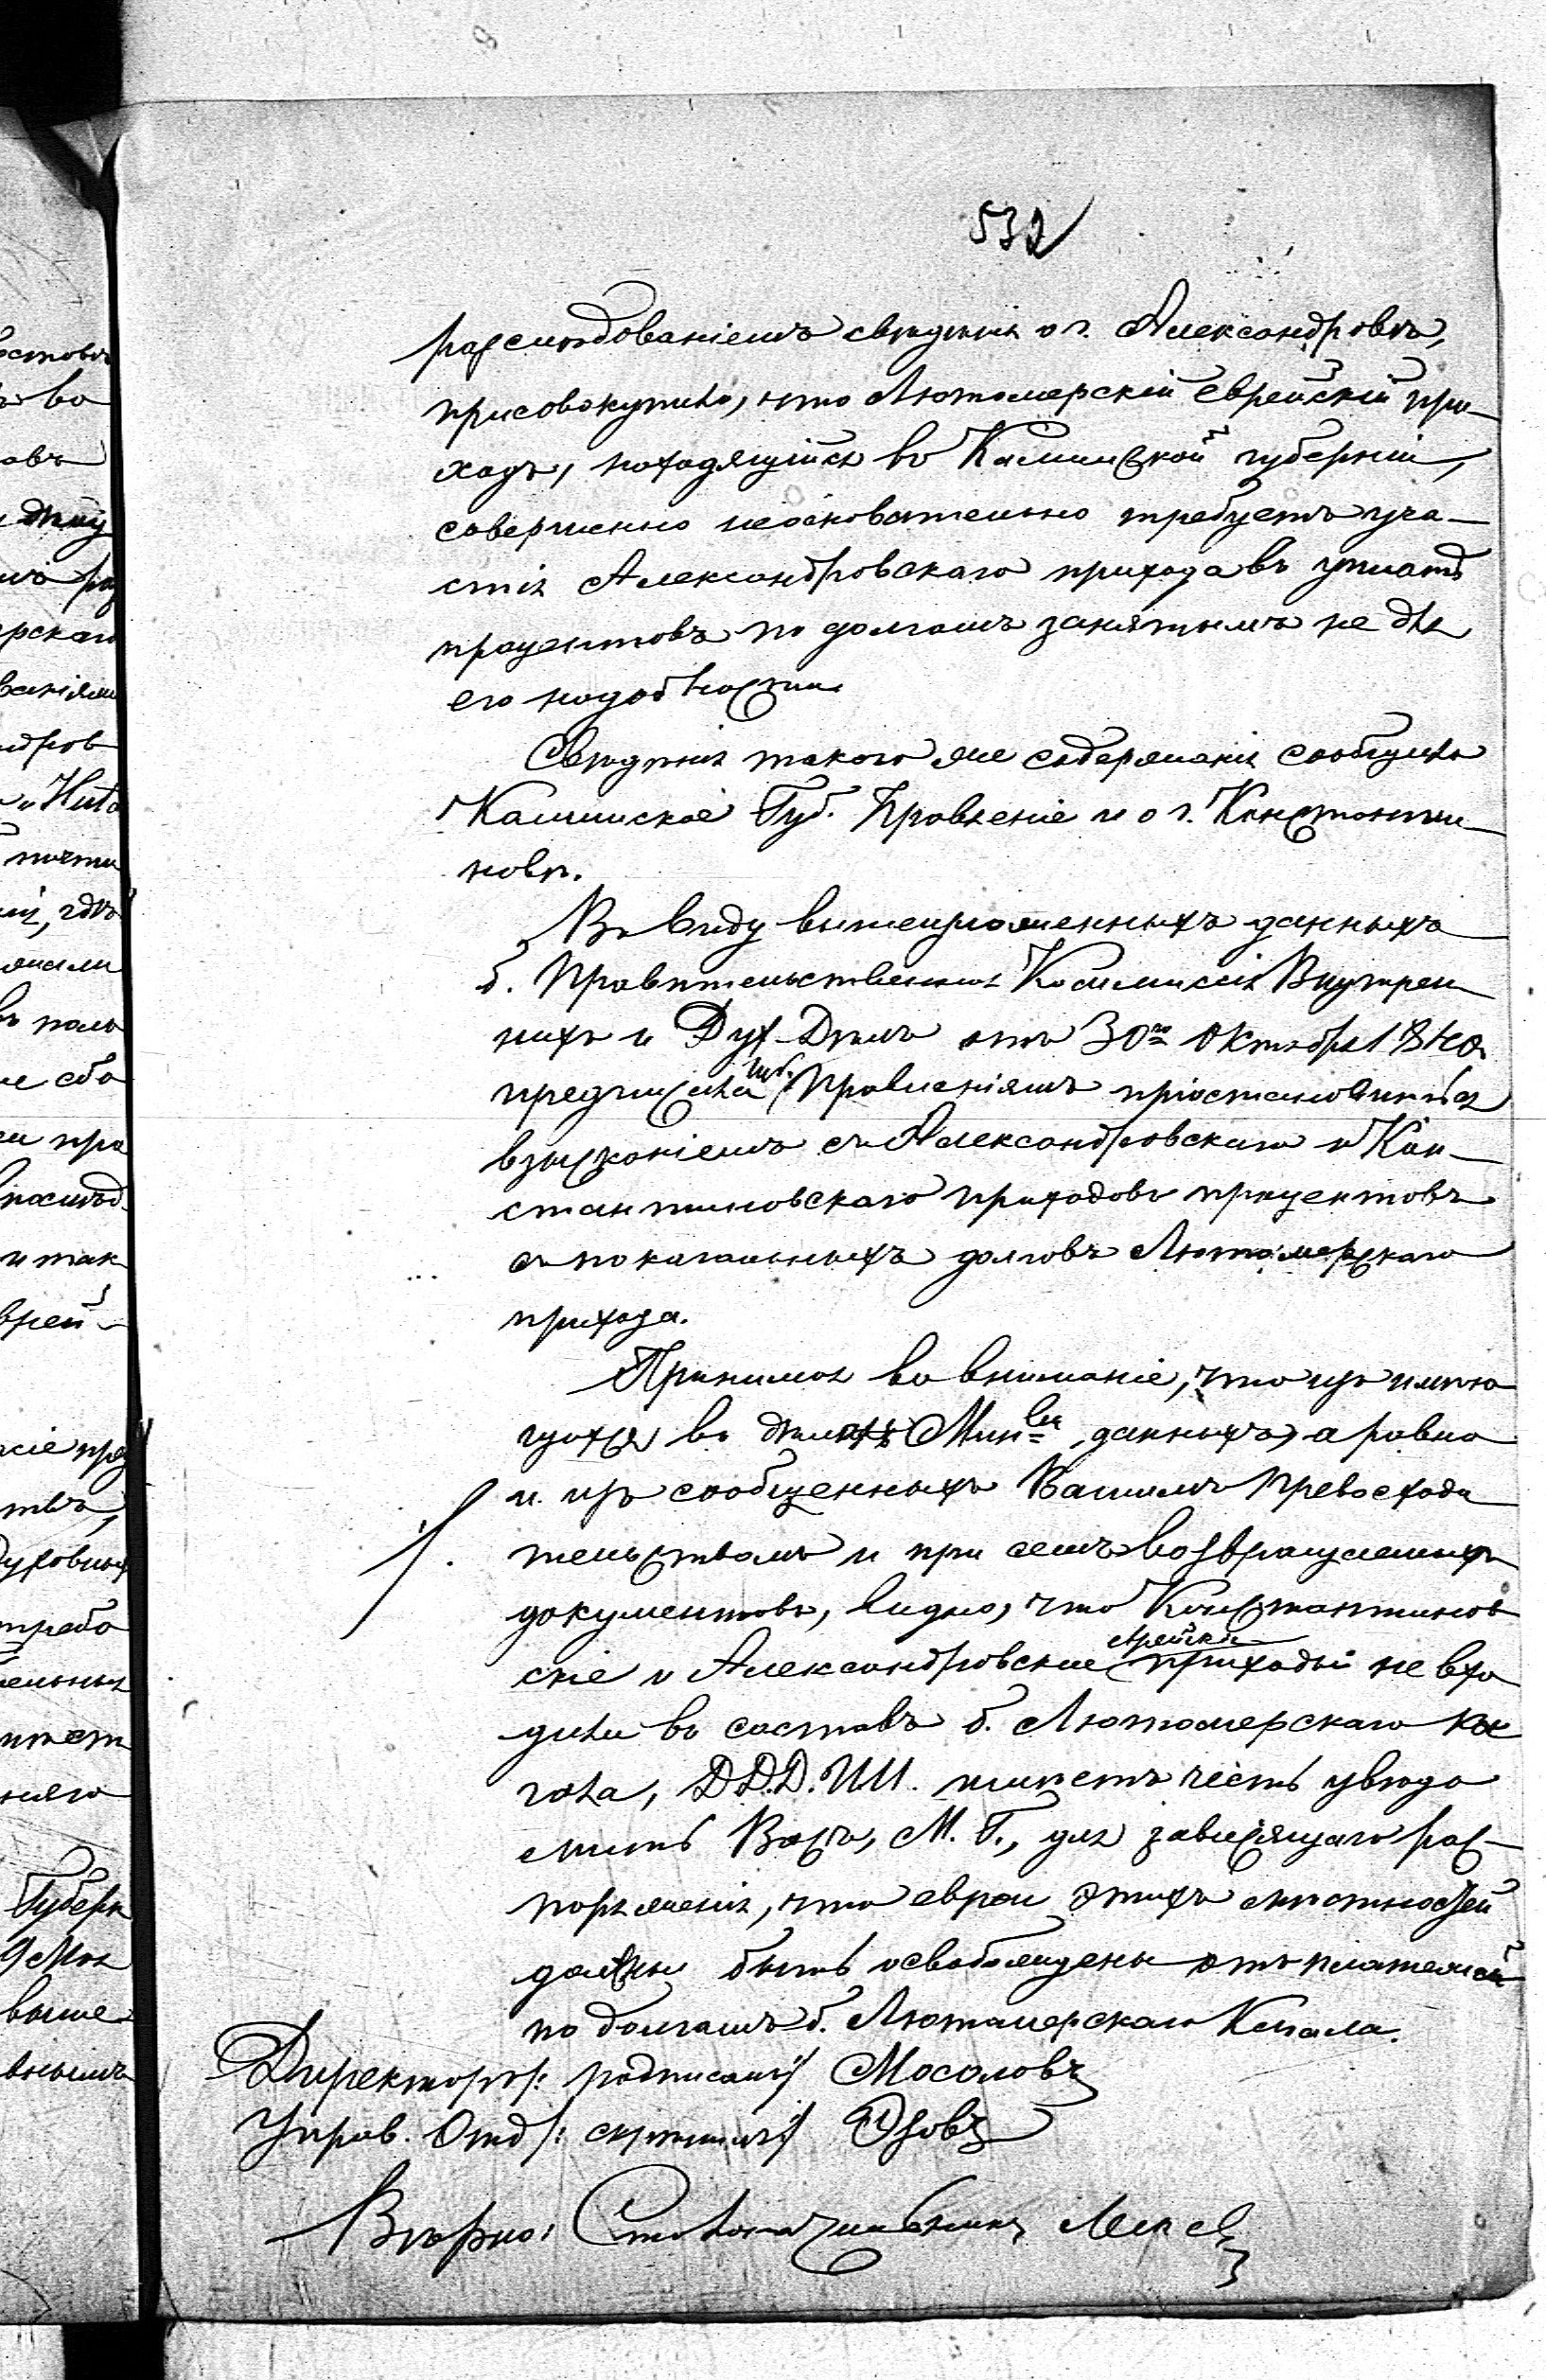 532
разслѣдованіемъ свѣдѣнія о г. Александровѣ,
присовокупило, что Лютомерскій Еврейскій при-
ходъ, находящійся во Калишской губерніи,
совершенно неосновательно требуетъ уча-
стія Александровскаго прихода въ уплатѣ
процентовъ по долгамъ занятымъ не для
его надобности.
Свѣдѣнія такого же содержанія сообщило
Калишское Губ. Правленіе и о г. Константи-
новѣ.
Въ виду вышеизложенныхъ данныхъ
б. Правительственная Коммиссія Внутрен
нихъ и Дух. Дѣлъ отъ 30го Октября 1840.
предписала Губ. Правленіямъ пріостановиться
взысканіемъ съ Александровскаго и Кон-
стантиновскаго приходовъ процентовъ
съ показанныхъ долговъ Лютомерскаго
прихода.
Принимая во вниманіе, что изъ имѣю
щихся въ дѣлахъ Мин-ва данныхъ, а равно
и изъ сообщенныхъ Вашимъ Превосходи
тельствомъ и при семъ возвращаемыхъ
документовъ, видно, что Константинов
скіе и Александровскіе еврейскіе приходы не вхо
дили въ составъ б. Лютомерскаго ка
гала, Д.Д.Д.И.И. имѣетъ честь увѣдо
мить Васъ, М. Г., для зависящаго рас-
поряженія, что евреи этихъ мѣстностей
должны быть освобождены отъ платежей
по долгамъ б. Лютомерскаго Кагала.
Директоръ /: подписалъ :/ Мосоловъ
Управ. Отд. /: скрѣпилъ :/ Озовъ
Вѣрно: Столоначальникъ